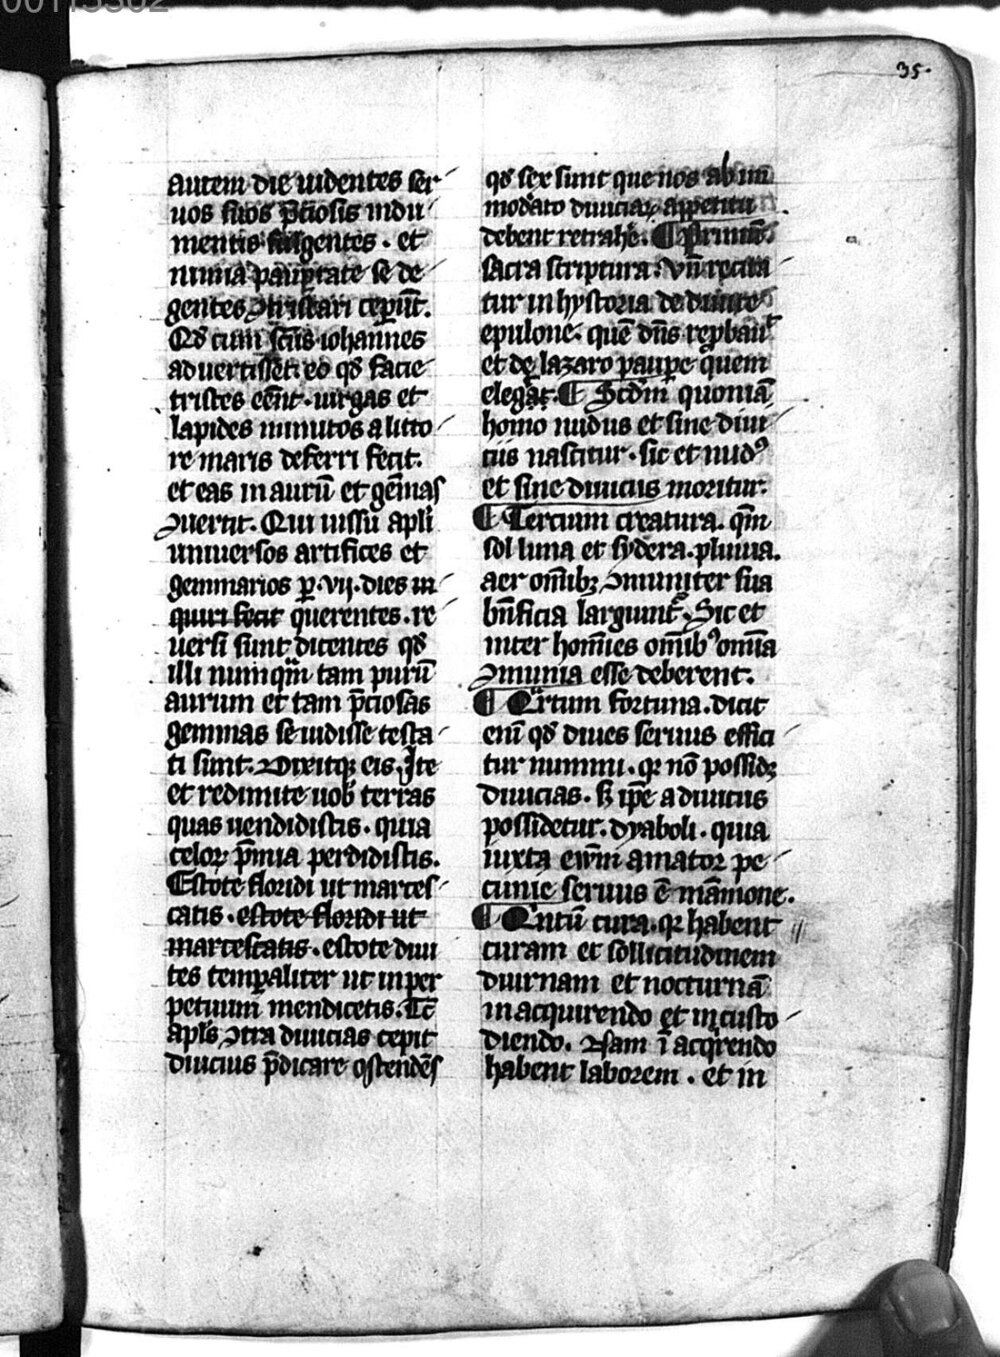 35.
autem die uidentes ser
uos suos p̄ciosis indu
mentis fulgentes . et
nimia paup̲tate se de
gentes ꝯtristari cep̲ūt.
Qd̕ cum sc̄us iohannes
aduertisset. eo qd̕ facie
tristes eēnt . uirgas et
lapides minutos a litto
re maris deferri fecit.
et eas in aurū et gēmas
ꝯuertit. Qui iussu apl̄i
uniuersos artifices et
gemmarios p̲ .vij. dies in
quiri fecit querentes . re
uersi sunt dicentes qd̕
illi nunꝙm tam purū
aurum et tam p̄ciosas
gemmas se uidisse testa
ti sunt. Dixitqꝫ eis. Ite
et redimite uob̕ terras
quas uendidistis . quia
celoꝝ p̄mia perdidistis.
Estote floridi ut marces
catis . estote floridi ut
marcescatis . estote diui
tes temp̲aliter ut in per
petuum mendicetis. Tc̄
apl̄s ꝯtra diuicias cepit
diucius p̄dicare ostendēs
qd̕ sex sunt que nos ab im
moderato diuiciaꝝ appetitu
debent retrahe̕. ¶ Primū.
sacra scriptura. vn̄ recita
tur in hystoria de diuite
epulone . quē dn̄s rep̲bauit
et de lazaro paup̲e quem
elegerat. ¶ Scd̄m quoniā
homo nudus et sine diui
ciis nascitur . sic et nudꝰ
et sine diuiciis moritur.
¶ Tercium creatura. qm̄
sol luna et sydera . pluuia.
aer om̄ibꝫ ꝯmuniter sua
bn̄ficia largiunt̕. Sic et
inter homīes om̄ibꝰ om̄ia
ꝯmunia esse deberent.
¶ Qͣrtum fortuna. dicit
enī qd̕ diues seruus effici
tur nummi . qꝛ nō possidꝫ
diuicias . sꝫ ip̄e a diuiciis
possidetur. dyaboli . quia
iuxta ewm̄ amator pe
cunie seruus ē māmone.
¶ Qͥntū cura. qꝛ habent
curam et sollicitudinem
diurnam et nocturnā
in acquirendo et in custo
diendo. Nam ī acqͥrendo
habent laborem . et in